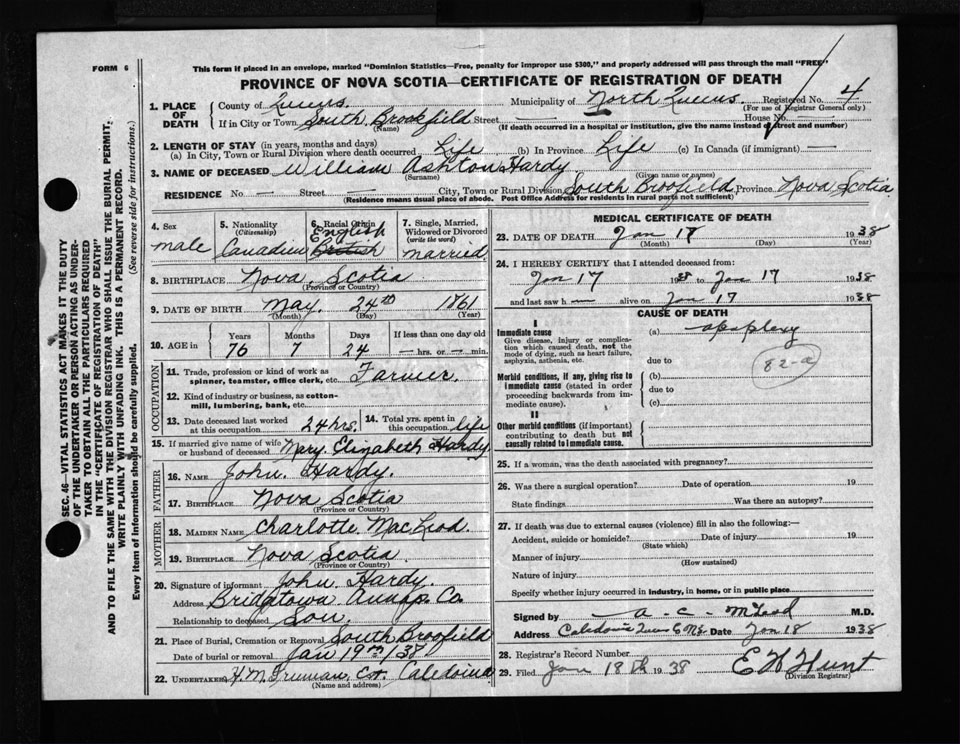 FORM 6
This form if placed in an envelope, marked "Dominion Statistics—Free, penalty for improper use $300," and properly addressed will pass through the mail "FREE"
PROVINCE OF NOVA SCOTIA—CERTIFICATE OF REGISTRATION OF DEATH
1. PLACE OF DEATH
County of Queens. Municipality of North Queens. Registered No. 4
(For use of Registrar General only)
If in City or Town South Brookfield Street — House No. —
(Name) (If death occurred in a hospital or institution, give the name instead of street and number)
2. LENGTH OF STAY (in years, months and days)
(a) In City, Town or Rural Division where death occurred Life (b) In Province Life (c) In Canada (if immigrant) —
3. NAME OF DECEASED William Ashton Hardy
(Surname) (Given name or names)
RESIDENCE No. — Street — City, Town or Rural Division South Broofield Province Nova Scotia
(Residence means usual place of abode. Post Office Address for residents in rural parts not sufficient)
SEC. 46—VITAL STATISTICS ACT MAKES IT THE DUTY
OF THE UNDERTAKER OR PERSON ACTING AS UNDER-
TAKER TO OBTAIN ALL THE PARTICULARS REQUIRED
IN THE "CERTIFICATE OF REGISTRATION OF DEATH"
AND TO FILE THE SAME WITH THE DIVISION REGISTRAR WHO SHALL ISSUE THE BURIAL PERMIT.
WRITE PLAINLY WITH UNFADING INK. THIS IS A PERMANENT RECORD.
Every item of information should be carefully supplied. (See reverse side for instructions.)
4. Sex
male
5. Nationality
(Citizenship)
Canadian
6. Racial Origin
English
British
7. Single, Married,
Widowed or Divorced
(write the word)
married
8. BIRTHPLACE Nova Scotia
(Province or Country)
9. DATE OF BIRTH May 24th 1861
(Month) (Day) (Year)
10. AGE in
Years Months Days If less than one day old
76 7 24 — hrs. or — min.
OCCUPATION
11. Trade, profession or kind of work as
spinner, teamster, office clerk, etc. Farmer.
12. Kind of industry or business, as cotton-
mill, lumbering, bank, etc.
13. Date deceased last worked
at this occupation 24 hrs.
14. Total yrs. spent in
this occupation life
15. If married give name of wife
or husband of deceased Mary Elizabeth Hardy
FATHER
16. NAME John Hardy.
17. BIRTHPLACE Nova Scotia
(Province or Country)
MOTHER
18. MAIDEN NAME Charlotte MacLeod
19. BIRTHPLACE Nova Scotia
(Province or Country)
20. Signature of informant John Hardy.
Address Bridgtown Annap. Co.
Relationship to deceased Son.
21. Place of Burial, Cremation or Removal South Broofield
Date of burial or removal Jan 19th/38
22. UNDERTAKER H. M. Freeman, Co. Caledonia
(Name and address)
MEDICAL CERTIFICATE OF DEATH
23. DATE OF DEATH Jan 17 1938
(Month) (Day) (Year)
24. I HEREBY CERTIFY that I attended deceased from:
Jan 17 1938 to Jan 17 1938
and last saw h — alive on Jan 17 1938
CAUSE OF DEATH
I
Immediate cause
Give disease, injury or complica-
tion which caused death, not the
mode of dying, such as heart failure,
asphyxia, asthenia, etc.
(a) apoplexy
82-a
due to
Morbid conditions, if any, giving rise to
immediate cause (stated in order
proceeding backwards from im-
mediate cause).
(b)
due to
(c)
II
Other morbid conditions (if important)
contributing to death but not
causally related to immediate cause.
25. If a woman, was the death associated with pregnancy?
26. Was there a surgical operation? Date of operation 19
State findings Was there an autopsy?
27. If death was due to external causes (violence) fill in also the following:—
Accident, suicide or homicide? Date of injury 19
(State which)
Manner of injury
(How sustained)
Nature of injury
Specify whether injury occurred in industry, in home, or in public place
Signed by a - c - McLeod M.D.
Address Caledonia Queens Co NS. Date Jan 18 1938
28. Registrar's Record Number
29. Filed Jan 18th 1938 E H Hunt
(Division Registrar)